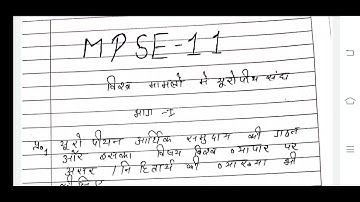 MPSE-11
विश्व मामलों मे यूरोपीय संघ
भाग -I
प्र०1 यूरोपीयन आर्थिक समुदाय की गठन
और इसका विषय विश्व व्यापार पर
असर / निहितार्थ की व्याख्या की
कीजिए